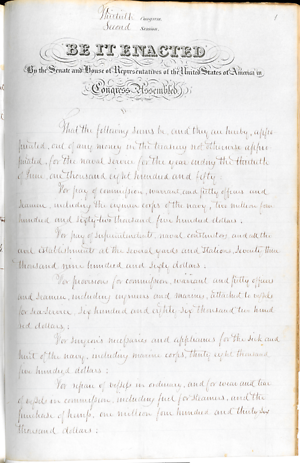 Thirtieth Congress.
Second Session.
1
BE IT ENACTED
By the Senate and House of Representatives of the United States of America in
Congress Assembled,
That the following sums be, and they are hereby, appro
priated, out of any money in the treasury not otherwise appro
priated, for the naval service for the year ending the thirtieth
of June, one thousand eight hundred and fifty:
For pay of commission, warrant and petty officers and
seamen, including the engineer corps of the navy, two million four
hundred and sixty-two thousand, four hundred dollars:
For pay of superintendents, naval constructors, and all the
civil establishments at the several yards and stations, seventy three
thousand nine hundred and sixty dollars:
For provisions for commission, warrant and petty officers
and seamen, including engineers and marines, attached to vessels
for sea service, six hundred and eighty six thousand two hun
dred dollars:
For surgeon's necessaries and appliances for the sick and
hurt of the navy, including marine corps, thirty eight thousand
four hundred dollars:
For repair of vessels in ordinary, and for wear and tear
of vessels in commission, including fuel for steamers, and the
purchase of hemp, one million four hundred and thirty six
thousand dollars: